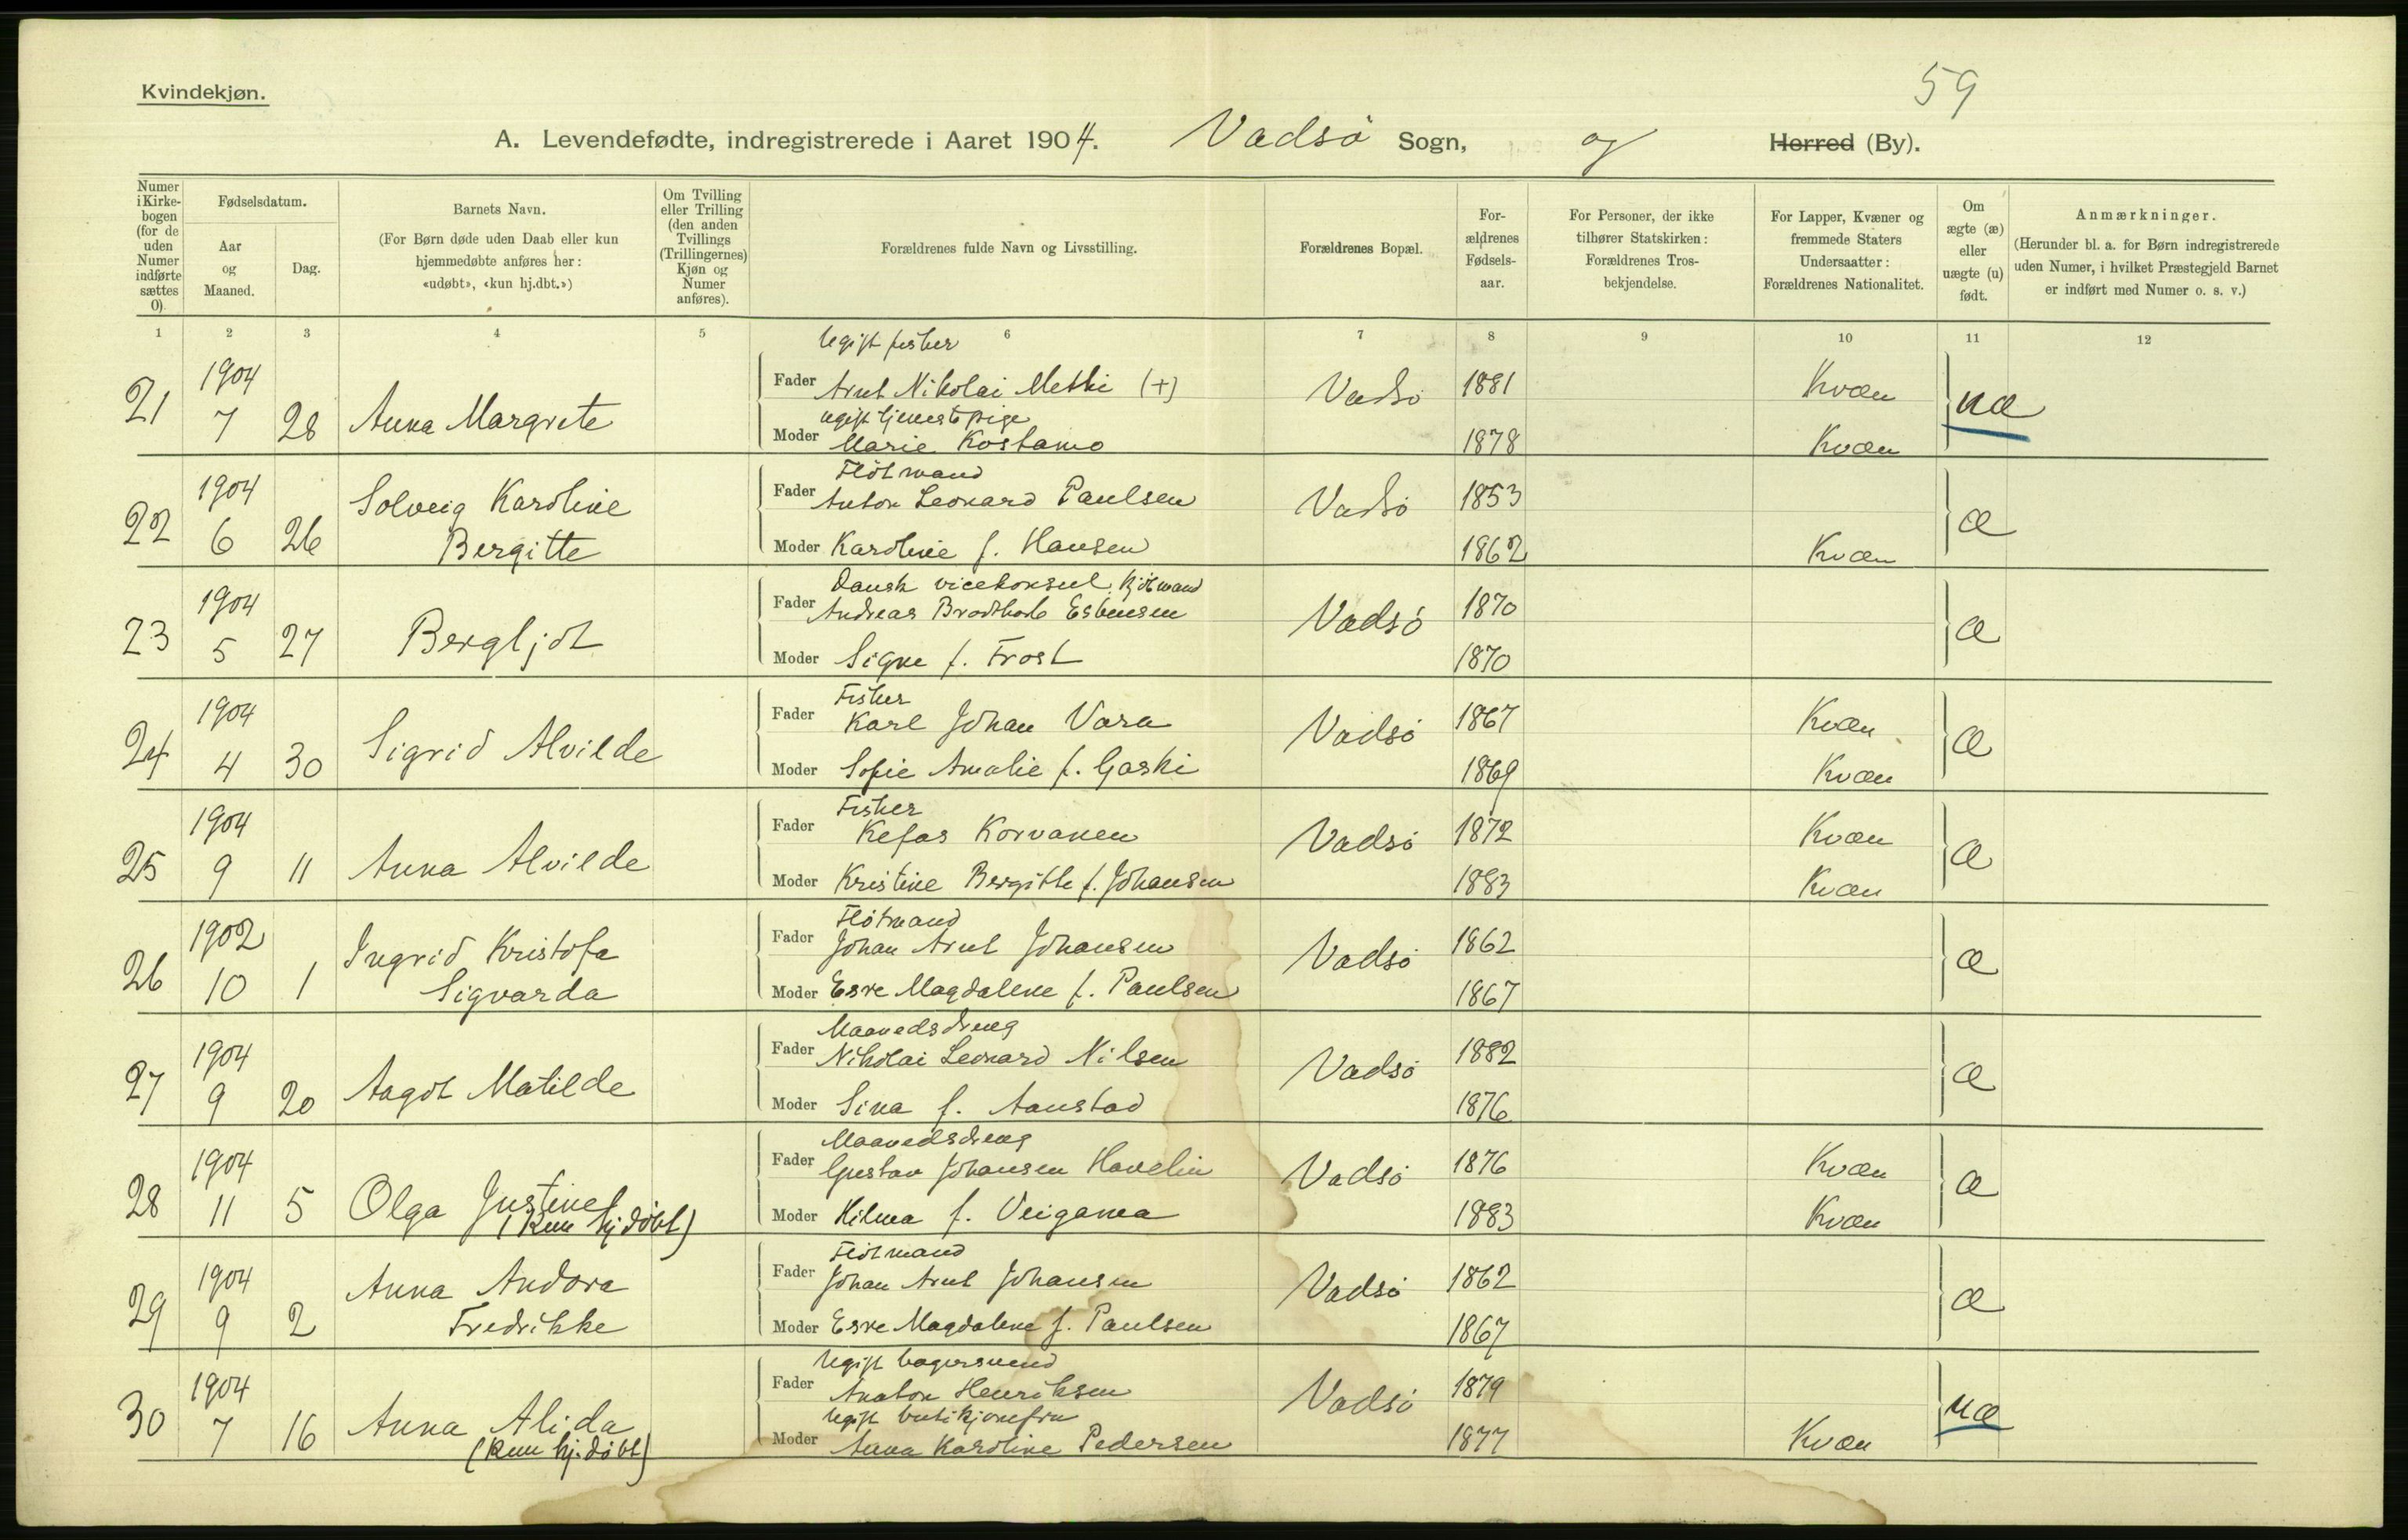 59
Kvindekjøn.
A. Levendefødte, indregistrerede i Aaret 1904. Vadsö Sogn, og Herred (By).
Numer i Kirkebogen (for de uden Numer indførte sættes 0).
Fødselsdatum.
Aar og Maaned.
Dag.
Barnets Navn.
(For Børn døde uden Daab eller kun hjemmedøbte anføres her: «udøbt», «kun hj.dbt.»)
Om Tvilling eller Trilling (den anden Tvillings (Trillingernes) Kjøn og Numer anføres).
Forældrenes fulde Navn og Livsstilling.
Forældrenes Bopæl.
Forældrenes Fødselsaar.
For Personer, der ikke tilhører Statskirken: Forældrenes Trosbekjendelse.
For Lapper, Kvæner og fremmede Staters Undersaatter: Forældrenes Nationalitet.
Om ægte (æ) eller uægte (u) født.
Anmærkninger.
(Herunder bl. a. for Børn indregistrerede uden Numer, i hvilket Præstegjeld Barnet er indført med Numer o. s. v.)
1 2 3 4 5 6 7 8 9 10 11 12
Ugift fisker
21 1904 7 28 Anna Margrete
Fader Arnt Nikolai Metti (+) Vadsö 1881 Kvæn uæ
ugift tjenestepige
Moder Marie Kostamo 1878 Kvæn
Flötmand
22 1904 6 26 Solveig Karoline Bergitte
Fader Anton Leonard Paulsen Vadsö 1853 æ
Moder Karoline f. Hansen 1862 Kvæn
Dansk vicekonsul, kjötmand
23 1904 5 27 Bergljot
Fader Andreas Brodtkorb Esbensen Vadsö 1870 æ
Moder Signe f. Frost 1870
Fisker
24 1904 4 30 Sigrid Alvilde
Fader Karl Johan Vara Vadsö 1867 Kvæn æ
Moder Sofie Amalie f. Gaski 1869 Kvæn
Fisker
25 1904 9 11 Anna Alvilde
Fader Kefas Korvanen Vadsö 1872 Kvæn æ
Moder Kristine Bergitte f. Johansen 1883 Kvæn
Flötmand
26 1902 10 1 Ingrid Kristofa Sigvarda
Fader Johan Arnt Johansen Vadsö 1862 æ
Moder Esre Magdalene f. Paulsen 1867
Maanedsdreng
27 1904 9 20 Aagot Matilde
Fader Nikolai Leonard Nilsen Vadsö 1882 æ
Moder Sina f. Aanstad 1876
Maanedsdreng
28 1904 11 5 Olga Justine (Kun hj döbt)
Fader Gustav Johansen Havelin Vadsö 1876 Kvæn æ
Moder Hilma f. 1883 Kvæn
Flötmand
29 1904 9 2 Anna Andora Fredrikke
Fader Johan Arnt Johansen Vadsö 1862 æ
Moder Esre Magdalene f. Paulsen 1867
Ugift bagersvend
30 1904 7 16 Anna Alida (Kun hj.döbt)
Fader Anton Henriksen Vadsö 1879 uæ
Ugift
Moder Anna Karoline Pedersen 1877 Kvæn